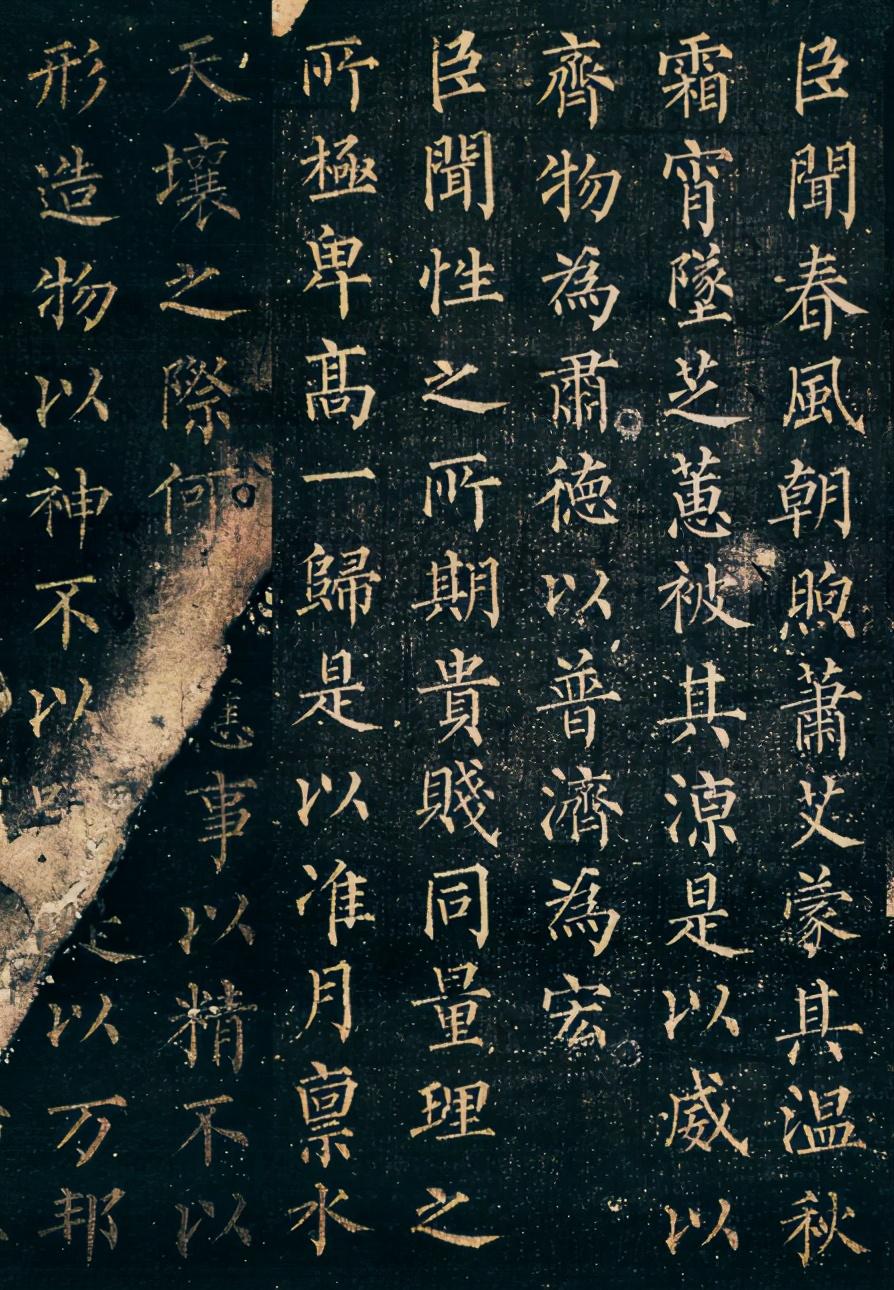 臣聞春風朝煦蕭艾蒙其温秋
霜宵墜芝蕙被其涼是以威以
齊物為肅德以普濟為宏
臣聞性之所期貴賤同量理之
所極卑高一歸是以准月禀水
天壤之際何事以精不以
形造物以神不以以万邦